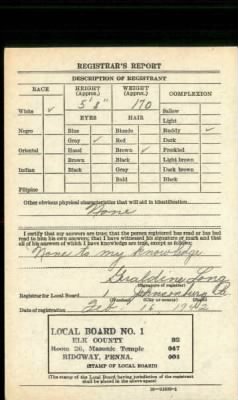 REGISTRAR'S REPORT
DESCRIPTION OF REGISTRANT
RACE HEIGHT (Approx.) WEIGHT (Approx.) COMPLEXION
5' 8" 170
Sallow
White ✓ EYES HAIR Light
Negro Blue Blonde Ruddy ✓
Gray ✓ Red Dark
Oriental Hazel Brown ✓ Freckled
Brown Black Light brown
Indian Black Gray Dark brown
Bald Black
Filipino
Other obvious physical characteristics that will aid in identification
None
I certify that my answers are true; that the person registered has read or has had
read to him his own answers; that I have witnessed his signature or mark and that
all of his answers of which I have knowledge are true, except as follows:
None to my knowledge
Geraldine Long
(Signature of registrar)
Registrar for Local Board Johnsonburg Pa
(Number) (City or county) (State)
Date of registration Feb 16 1942
LOCAL BOARD NO. 1
ELK COUNTY
Room 26, Masonic Temple 047
RIDGWAY, PENNA. 001
(STAMP OF LOCAL BOARD)
(The stamp of the Local Board having jurisdiction of the registrant
shall be placed in the above space)